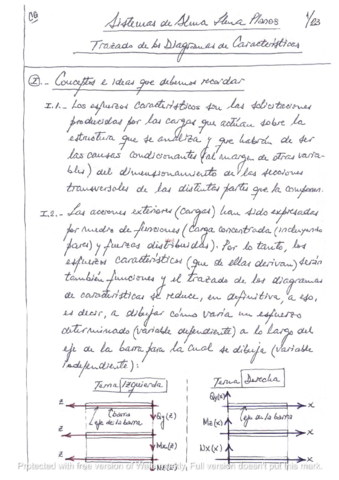 Sistemas de Alma Llena Planos 1/23
Trazado de los Diagramas de Características
I.- Conceptos e ideas que debemos recordar
I.1.- Los esfuerzos característicos son las solicitaciones
producidas por las cargas que actúan sobre la
estructura que se analiza y que habrán de ser
las causas condicionantes (al margen de otras varia-
bles) del dimensionamiento de las secciones
transversales de las distintas partes que la componen.
I.2.- Las acciones exteriores (cargas) han sido expresadas
por medio de funciones (carga concentrada (incluyendo
pares) y fuerzas distribuidas). Por lo tanto, los
esfuerzos característicos (que de ellas derivan) serán
también funciones y el trazado de los diagramas
de características se reduce, en definitiva, a eso,
es decir, a dibujar cómo varía un esfuerzo
determinado (variable dependiente) a lo largo del
eje de la barra para la cual se dibuja (variable
independiente):
Terna Izquierda Terna Derecha
z Qy(z) Qy(x) x
barra
eje de la barra eje de la barra
z Mx(z) Mz(x) x
z Nz(z) Nx(x) x
Protected with free version of Wat ly. Full version doesn't put this mark.